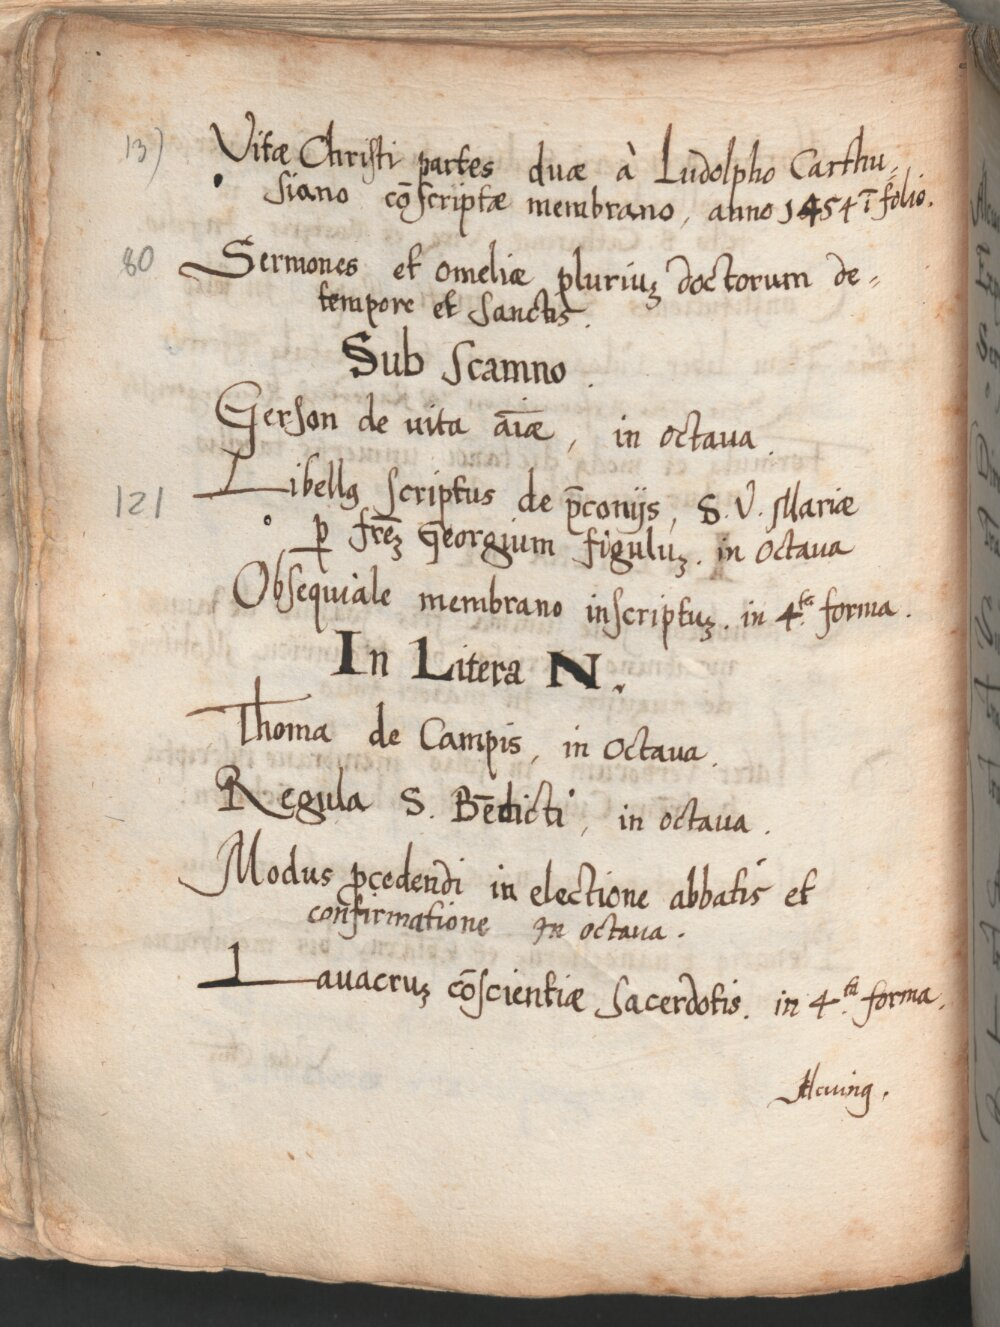 13) Vitæ Christi partes duæ à Ludolpho Carthu„
siano cōscriptæ membrano, anno 1454 ī folio.
80 Sermones et omeliæ pluriuȝ doctorum de„
tempore et Sanctis.
Sub Scamno.
Gerson de vita aīæ, in octava
121 Libellꝯ scriptus de p̄conijs, S. V. Mariæ
ꝑ frēȝ Georgium figuluȝ. in octava
Obsequiale membrano inscriptuȝ. in 4.ta forma.
In Litera N.
Thoma de Campis, in octava.
Regula S. Bēdicti, in octava.
Modus ꝓcedendi in electione abbatis et
confirmatione In octava.
Lavacruȝ cōscientiæ Sacerdotis. in 4.ta forma.